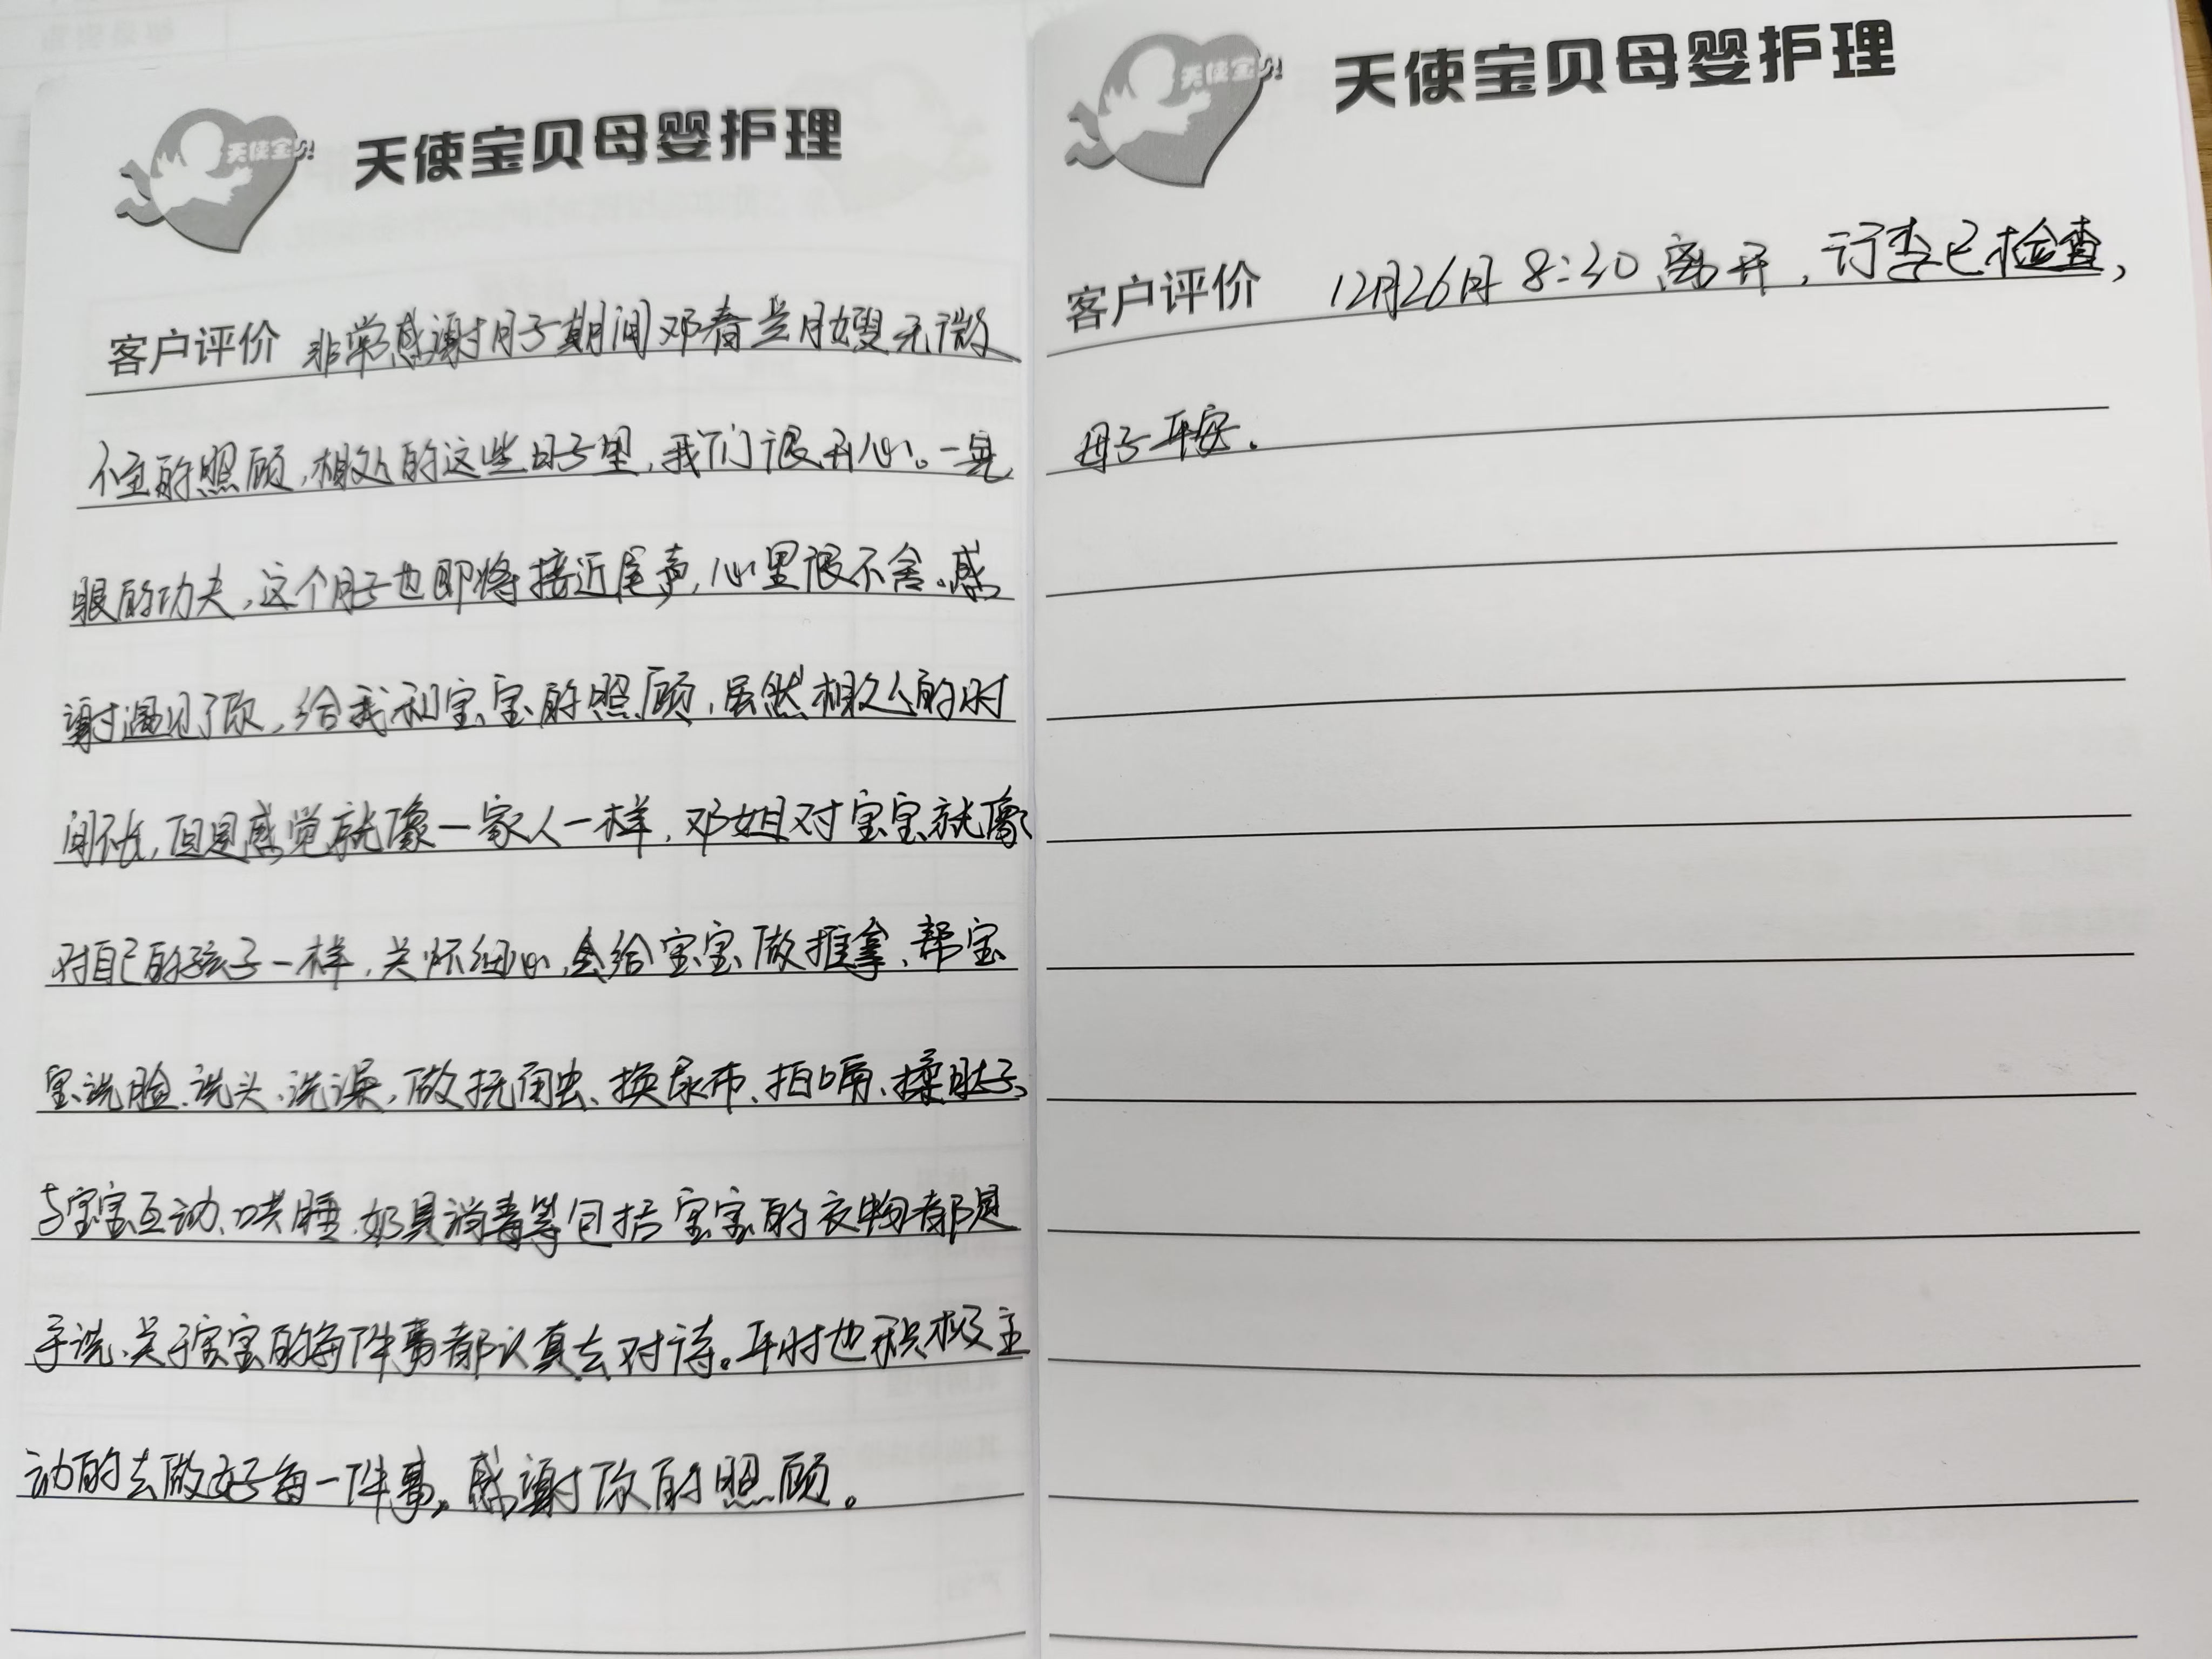 天使宝贝
天使宝贝母婴护理
客户评价 非常感谢月子期间邓春兰月嫂无微
不至的照顾,相处的这些日子里,我们很开心。一晃
眼的功夫,这个月子也即将接近尾声,心里很不舍。感
谢遇见了你,给我和宝宝的照顾,虽然相处的时
间不长,但是感觉就像一家人一样,邓姐对宝宝就像
对自己的孩子一样,关怀细心,会给宝宝做推拿、帮宝
宝洗脸、洗头、洗澡,做抚触、换尿布、拍嗝、揉肚子、
与宝宝互动、哄睡、奶具消毒等包括宝宝的衣物都是
手洗、关于宝宝的每件事都认真去对待。平时也积极主
动的去做好每一件事。感谢你的照顾。
天使宝贝
天使宝贝母婴护理
客户评价 12月26日 8:30 离开,行李已检查,
母子平安.